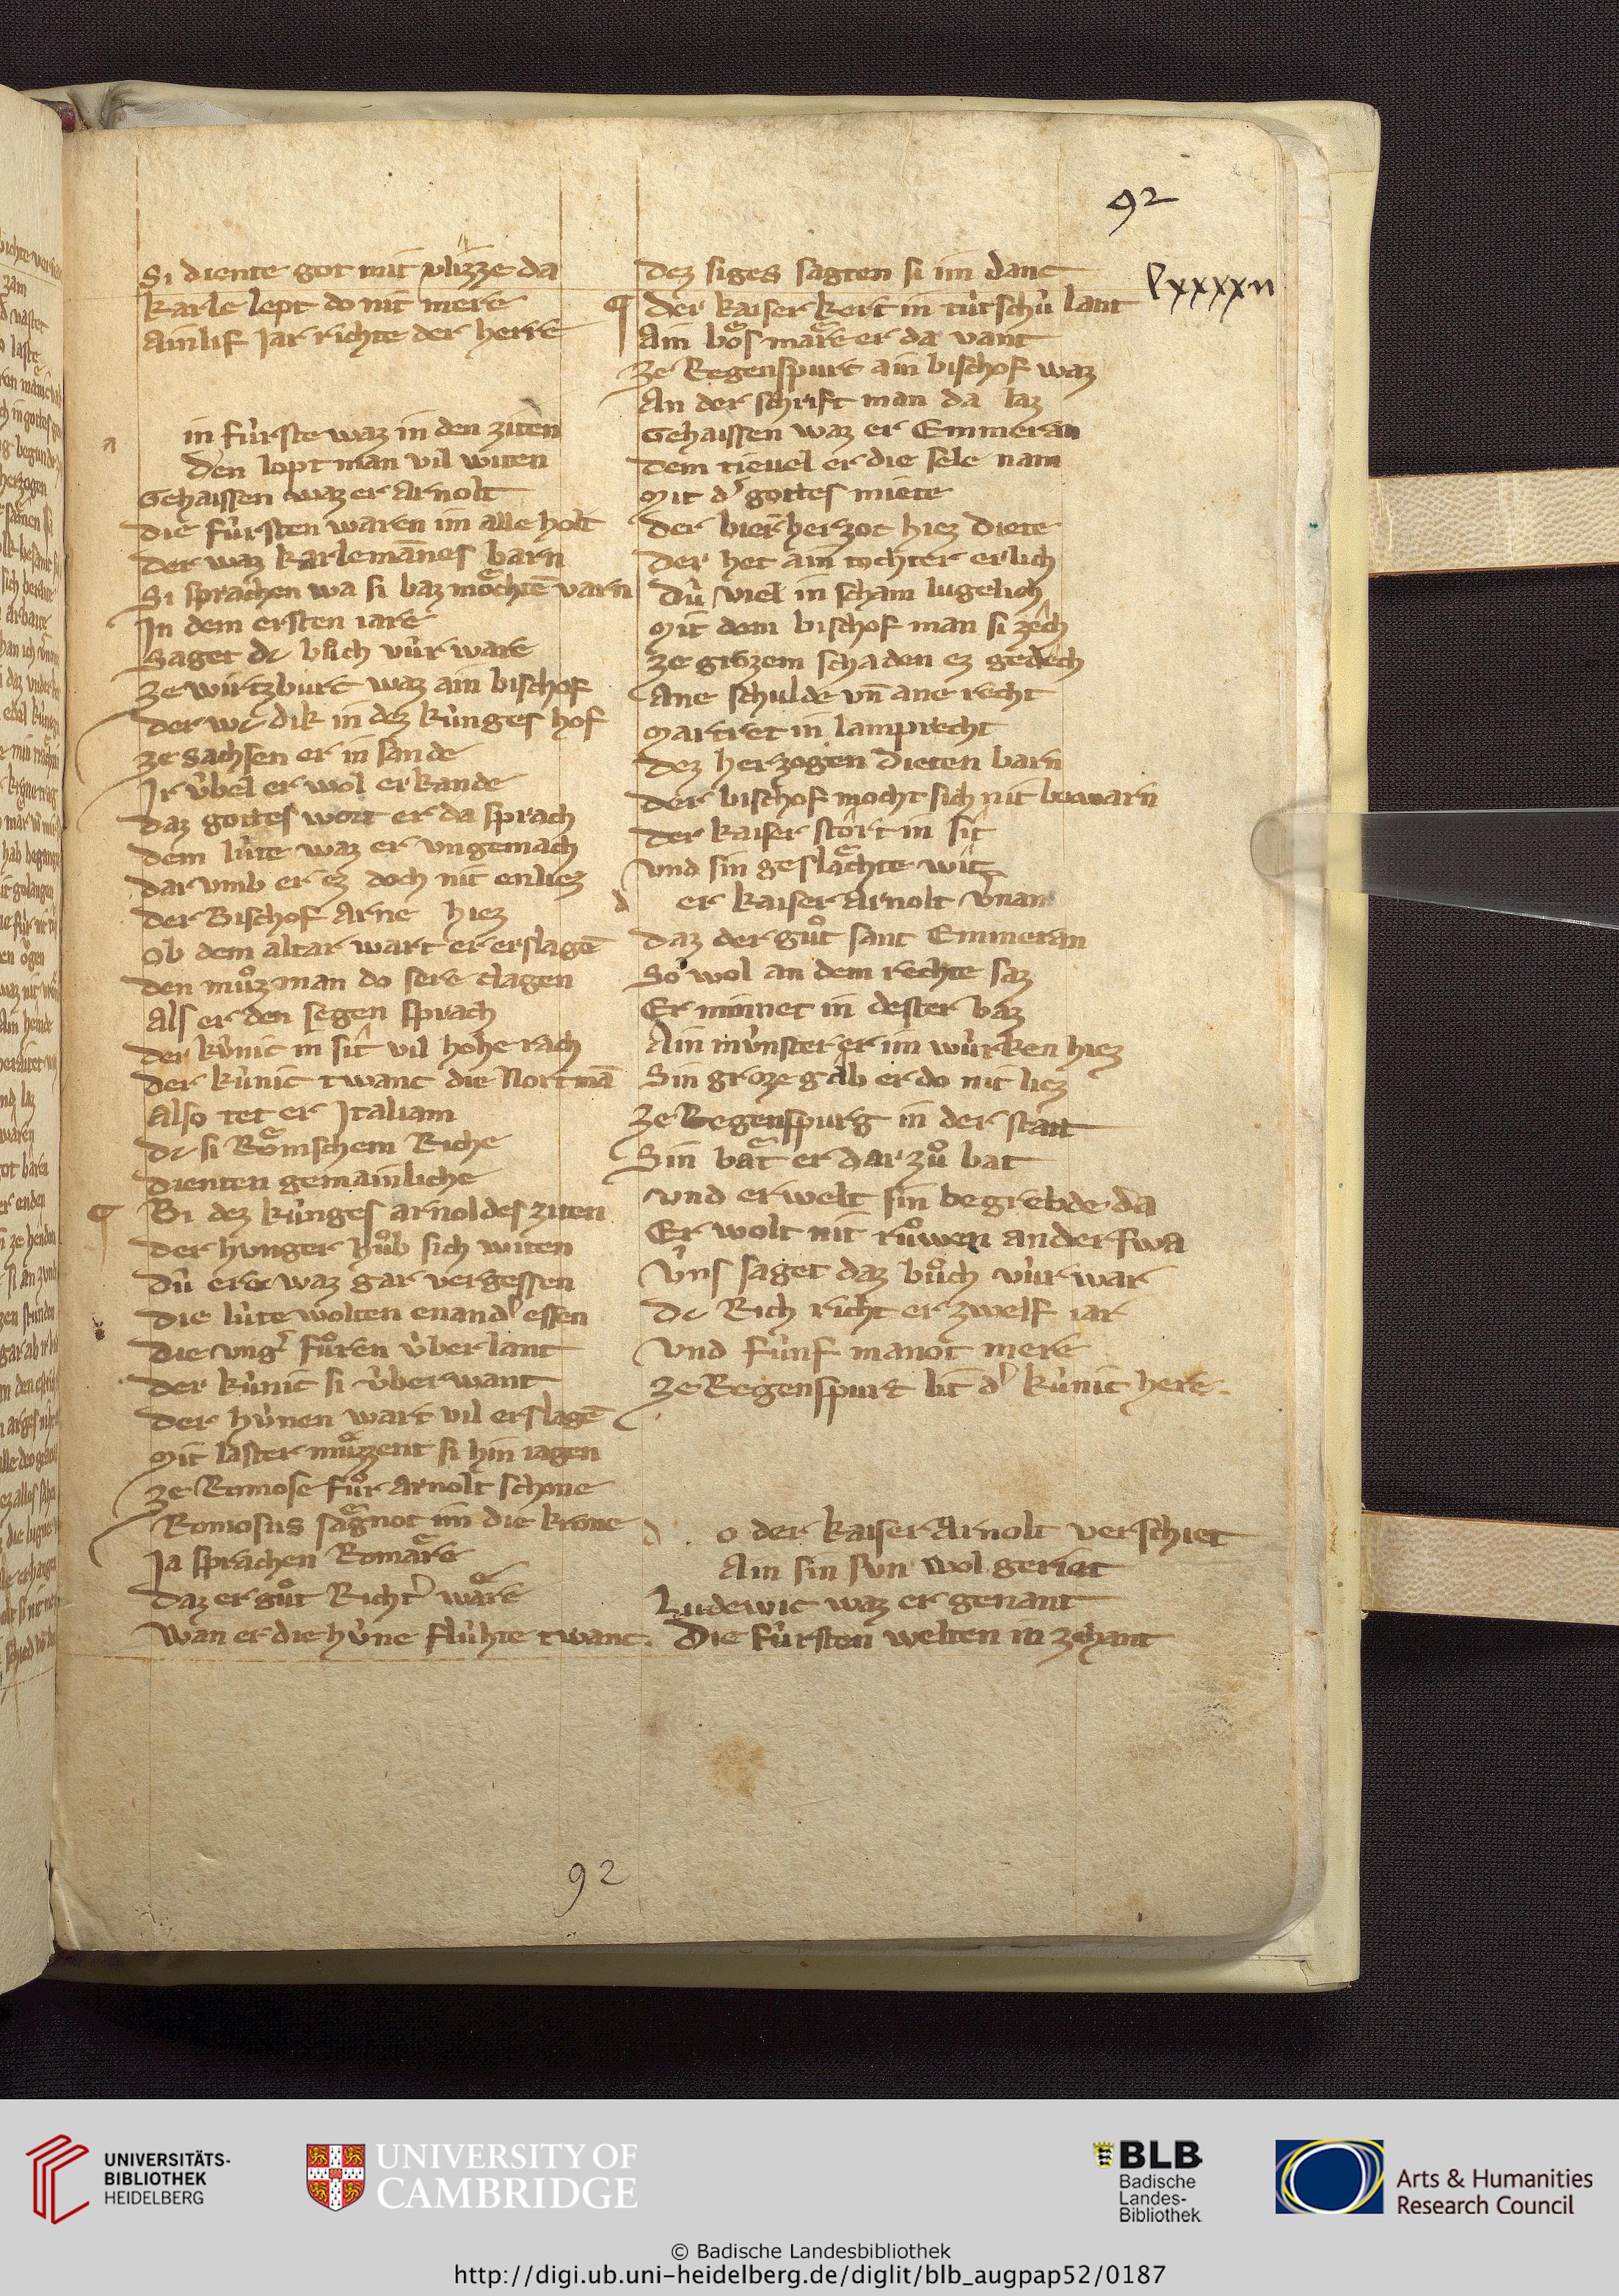 92
lxxxxii
Si diente got mit vlizze da
Karle lept do nit mere
Ainlif Jar richte der herre
a in fu̍rste waz in den ziten
Den lopt man vil witen
Gehaissen waz er Arnolt
Die fu̍rsten waren im alle holt
Der waz karlemānes barn
Si sprachen wa si baz moͤchtē varn
In dem ersten iare
Saget dc buͦch vu̍r ware
Ze wirtzburc waz ain bischof
Der wc dik in dez ku̍nges hof
Ze Sachsen er in sande
Ir u̍bel er wol erkande
Daz gottes wort er da sprach
Dem lu̍te waz er vngemach
Dar vmb er ez doch nit enliez
Der Bischof Arne hiez
Ob dem altar wart er erslagē
Den muͦz man do sere clagen
Als er den segen sprach
Der ku̍nic in sit vil hohe rach
Der ku̍nic twanc die Nortmā
Also tet er Italiam
Dc si Roͤmschem Riche
Dienten gemainliche
¶ Bi dez ku̍nges arnoldes ziten
Der hunger huͦb sich witen
Du̍ ere waz gar vergessen
Die lu̍te wolten enand' essen
Die vng' fuͦren u̍ber lant
Der ku̍nic si u̍berwant
Der hu̍nen wart vil erslagē
Mit laster muͤzzent si hin iagen
Ze Romose fuͦr Arnolt schone
Romosus saͤgnot im die krone
Ja sprachen Romaͤre
Daz er guͦt Richt' waͤre
Wan er die hu̍ne flu̍hte twanc.
Dez siges sagten si im danc
¶ Der kaiser kert in tu̍tschu̍ lant
Ain boͤs maͤre er da vant
Ze Regenspurc ain bischof waz
An der schrift man da laz
Gehaissen waz er Emmeran
Dem tieuel er die sele nam
Mit d' gottes miete
Der bier herzoc hiez Diete
Der het ain tochter erlich
Du̍ viel in scham lugelich
Mit dem bischof man si zech
Ze grozem schaden ez gedech
Ane schulde vn̄ ane recht
Martret in lamprecht
Dez herzogen Dieten barn
Der bischof mocht sich nit bewarn
Der kaiser stoͤrt in sit
Vnd sin geslaͤchte wit
d er kaiser Arnolt v̍nam
Daz der guͦt sant Emmeran
So wol an dem rechte saz
Er minnet in dester baz
Ain mu̍nster er im wu̍rken hiez
Sin groze gab er do nit liez
Ze Regenspurg in der statt
Sin baͤt er dar zuͦ bat
Vnd erwelt sin begrebde da
Er wolt nit ruͦwen anderswa
V̍ns saget daz buͦch vu̍r war
Dc Rich richt er zwelf iar
Vnd fu̍nf manot mere
Ze Regenspurc lit d' ku̍nic here.
d o der kaiser Arnolt verschiet
Ain sin sun wol geriet
Ludewic waz er genant
Die fu̍rsten welten in zehant
92
UNIVERSITÄTS-
BIBLIOTHEK
HEIDELBERG
UNIVERSITY OF
CAMBRIDGE
BLB
Badische
Landes-
Bibliothek
Arts & Humanities
Research Council
© Badische Landesbibliothek
http://digi.ub.uni-heidelberg.de/diglit/blb_augpap52/0187